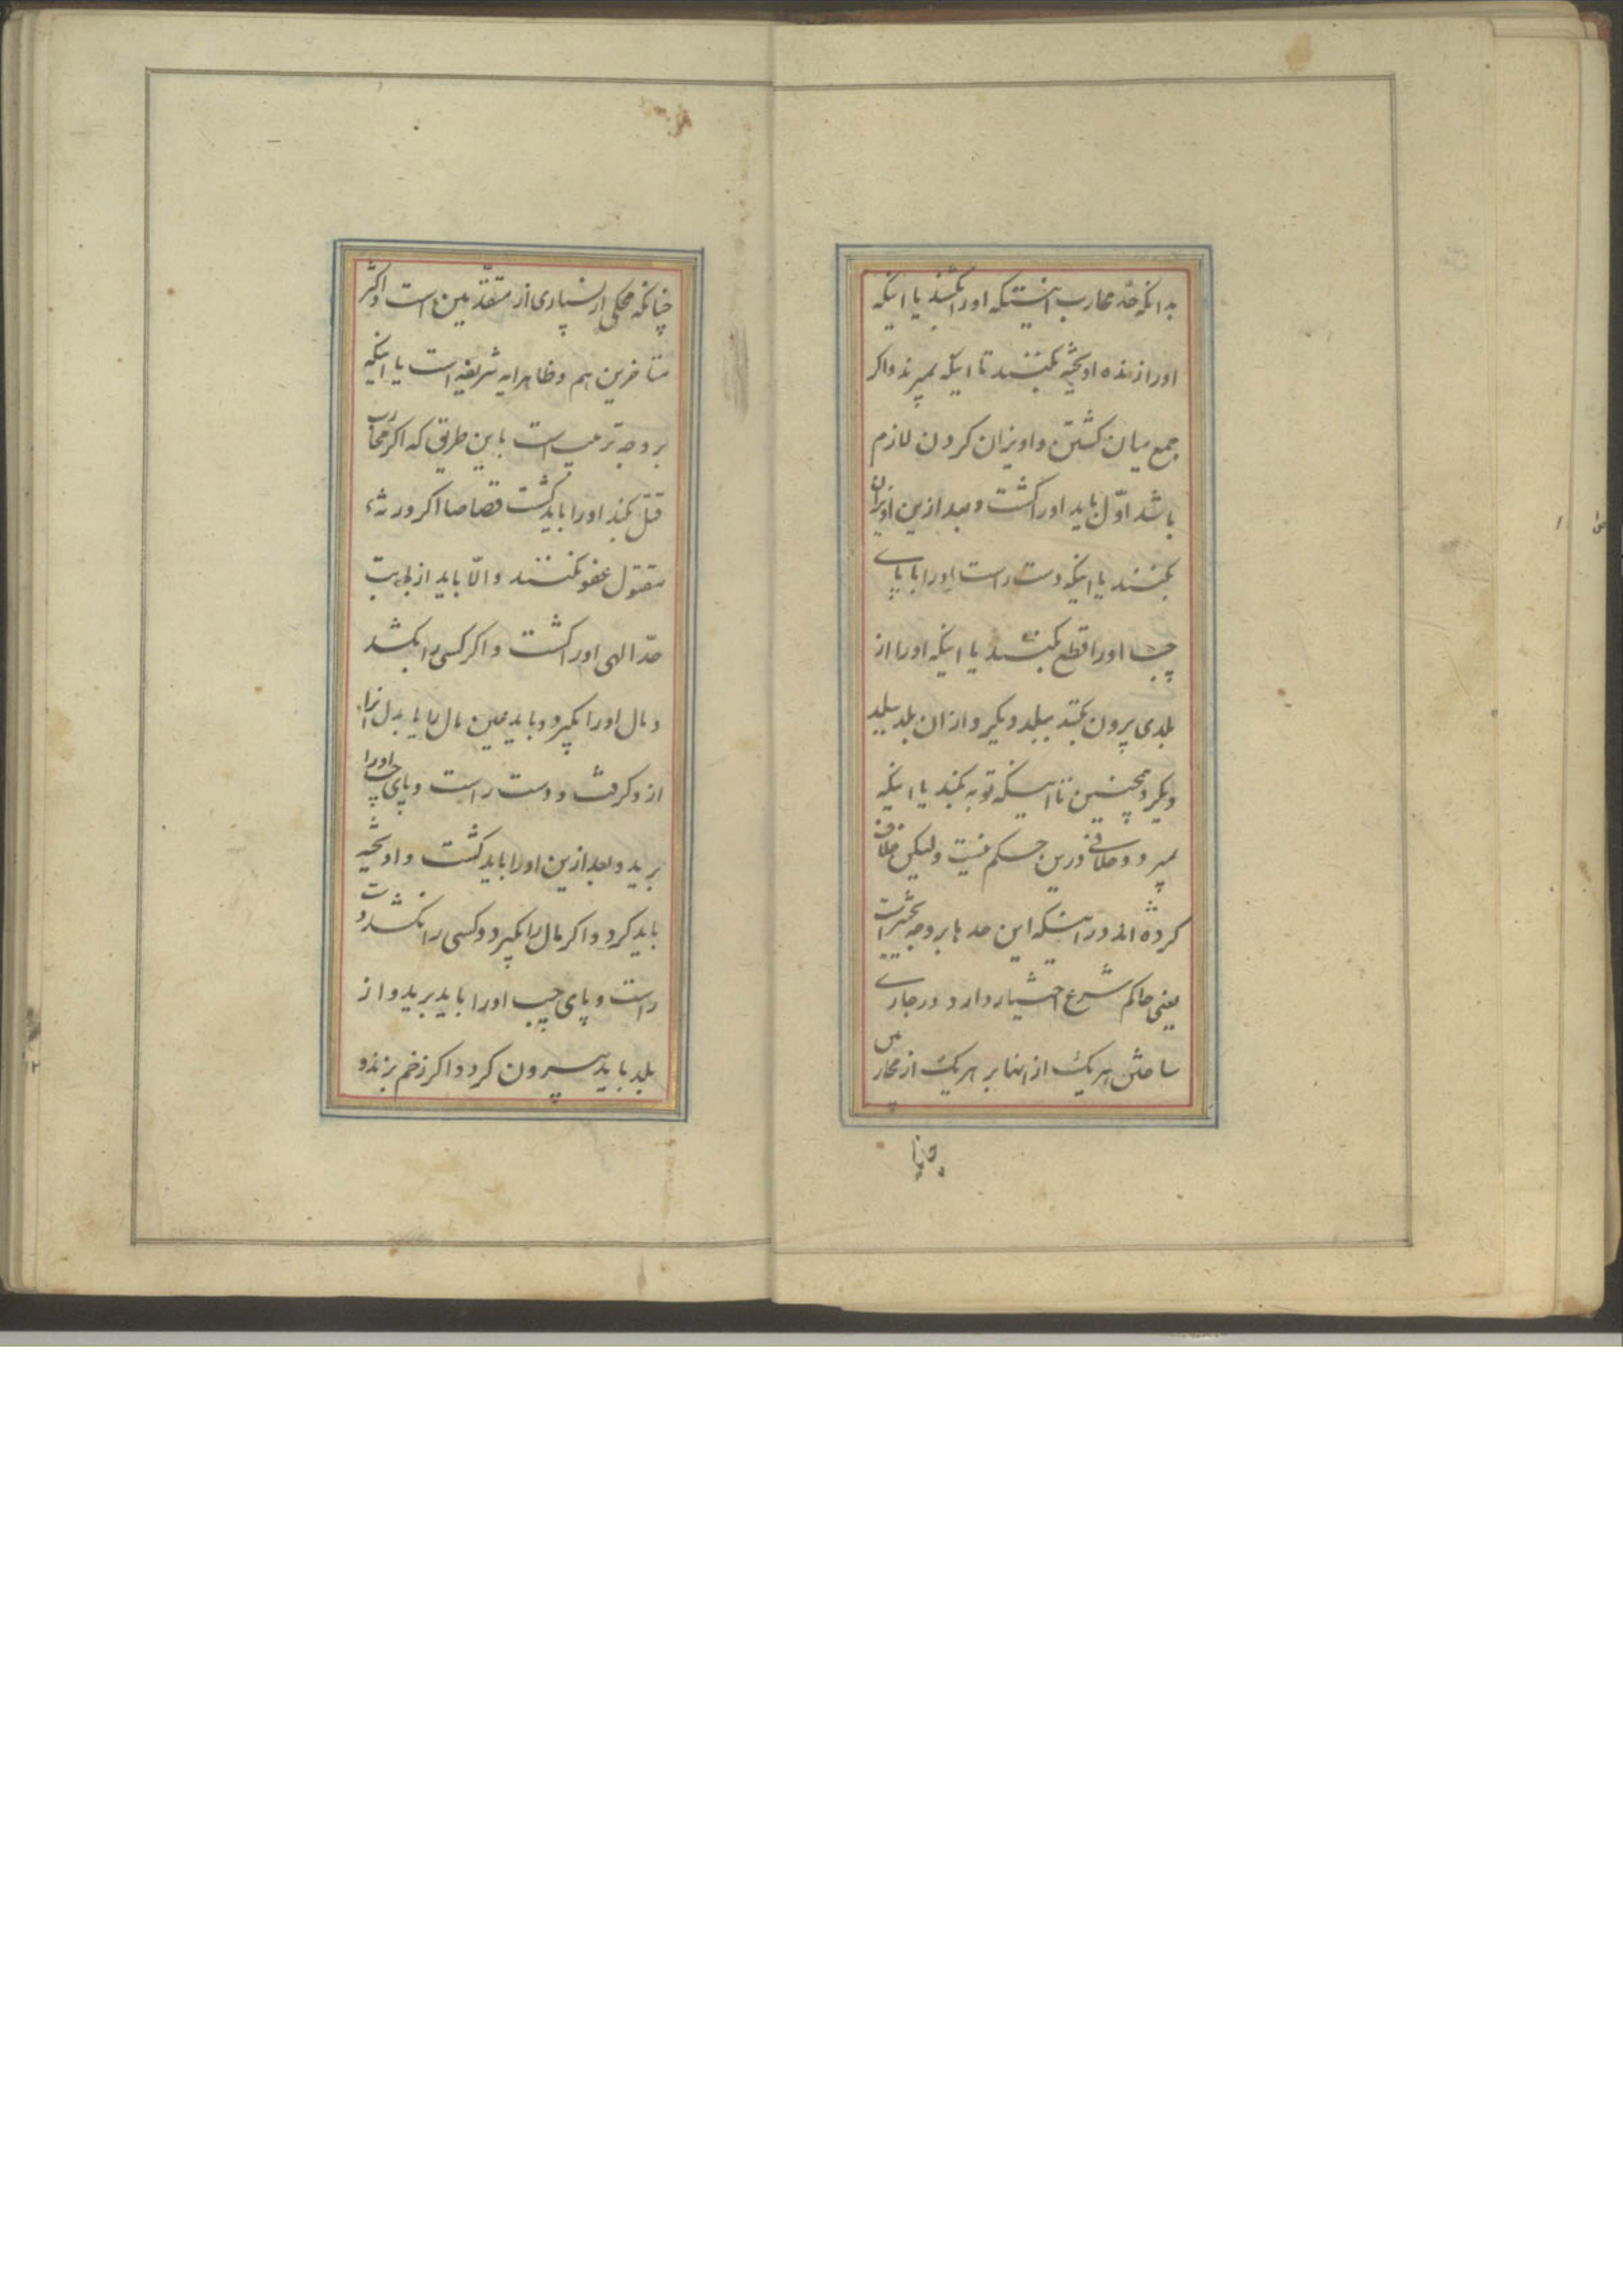 بدانکه حدّ محارب اینستکه اورا بکشند یا اینکه
اورا زنده اویخته بکنند تا اینکه بمیرند واکر
جمع میان کشتن واویزان کردن لازم
باشد اوّل باید اورا کشت وبعد ازین اویزان
بکنند یا اینکه دست راست اورا با پای
چپ اورا قطع بکنند یا اینکه اورا از
بلدی بیرون بکنند ببلد دیکر واز ان بلد ببلد
دیکر وهمچنین تا اینکه توبه بکند یا اینکه
بمیرد وخلافی درین حکم نیست ولیکن خلاف
کرده اند در اینکه این حدها بر وجه تخییر است
یعنی حاکم شرع اختیار دارد در جاری
ساختن هریک از اینها بر هریک از محاربین
چنانکه محکی از بسیاری از متقدّمین است واکثر
متاخرین هم وظاهر ایه شریفه است یا اینکه
بر وجه ترتیب است باین طریق که اکر محارب
قتل بکند اورا باید کشت قصاصا اکر ورثهء
مقتول عفو نکنند والّا باید از بابت
حدّ الهی اورا کشت واکر کسی را بکشد
ومال اورا بکیرد وباید عین مال را یا بدل انرا
ازو کرفت ودست راست وپای چپ اورا
برید وبعد ازین اورا باید کشت واویخته
باید کرد واکر مال را بکیرد وکسی را نکشد دست
راست وپای چپ اورا باید برید واز
بلد باید بیرون کرد واکر زخم بزند و